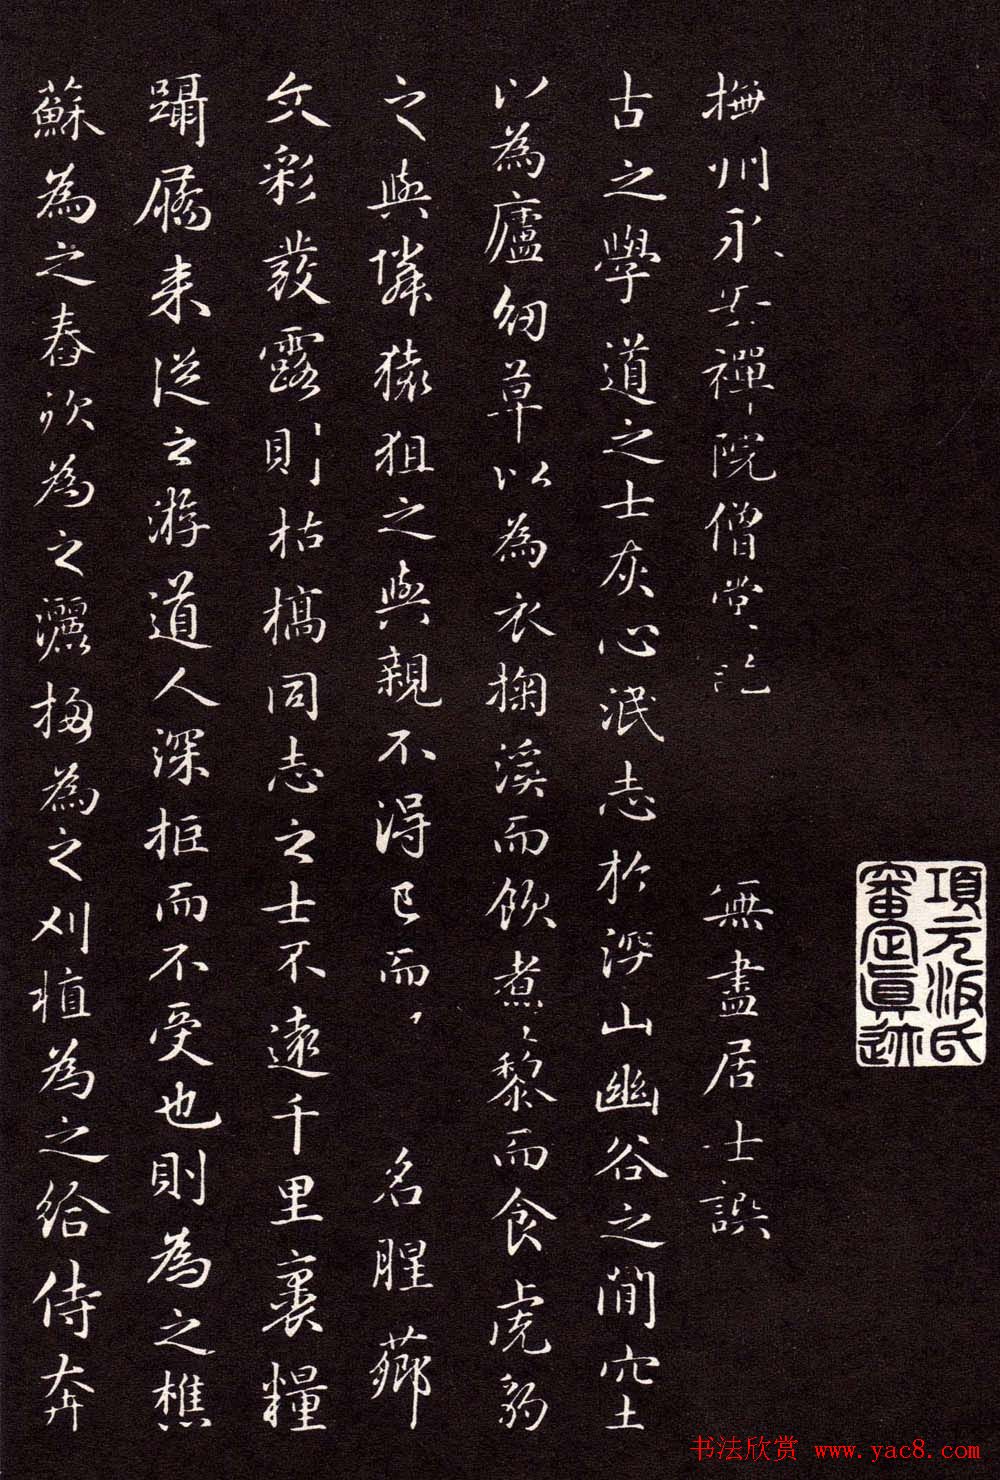 項元汴氏
審定真迹
撫州永安禪院僧堂記 無盡居士譔
古之學道之士灰心泯志於深山幽谷之間穴土
以為廬紉草以為衣掬溪而飲煮藜而食虎豹
之與隣猿狙之與親不得已而 名腥薌
文彩發露則枯槁同志之士不遠千里裹糧
躡屩来從之游道人深拒而不受也則為之樵
蘇為之舂炊為之灑掃為之刈植為之給侍奔
书法欣赏 www.yac8.com